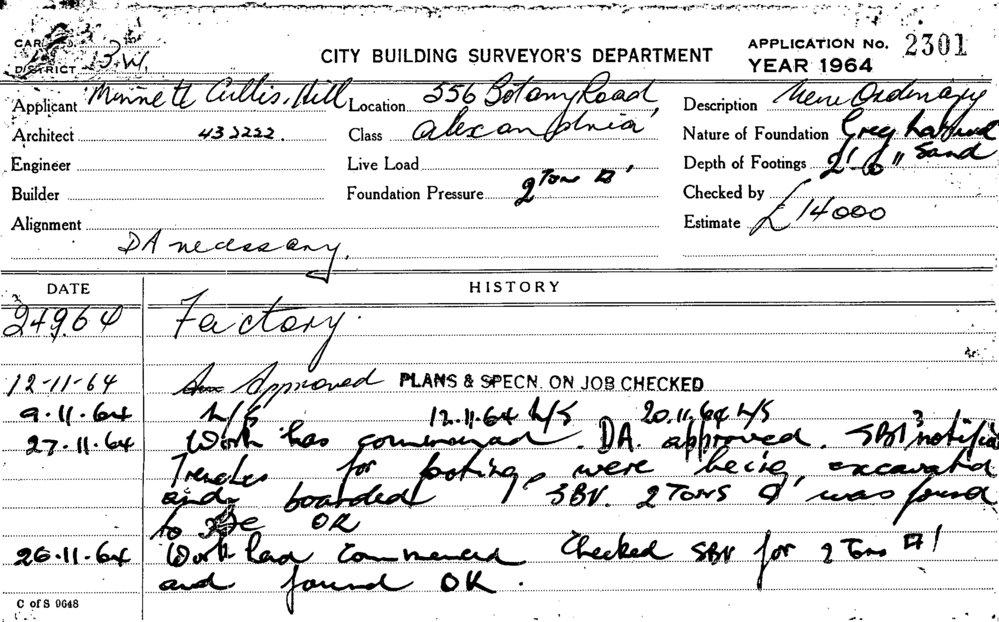 CITY BUILDING SURVEYOR'S DEPARTMENT
APPLICATION No. 2301
YEAR 1964
DISTRICT B.W.
Applicant Minnett Cullis, Hill
Location 556 Botany Road,
Description New Ordinary
Architect 432222.
Class Alexandria
Nature of Foundation Grey
Engineer
Live Load
Depth of Footings 2' 6" Sand
Builder
Foundation Pressure 2 Tons □'
Checked by
Alignment
Estimate £14000
DA necessary.
DATE
HISTORY
24964 Factory.
12-11-64 Approved PLANS & SPECN. ON JOB CHECKED
9.11.64 N/S 12.11.64 N/S 20.11.64 N/S
27.11.64 Work has commenced. DA. approved.
Trenches for footings were being excavated
and boarded SBV. 2 Tons □' was found
to be OK
26.11.64 Work had commenced Checked SBV for 2 Tons □'
and found OK.
C of S 9648